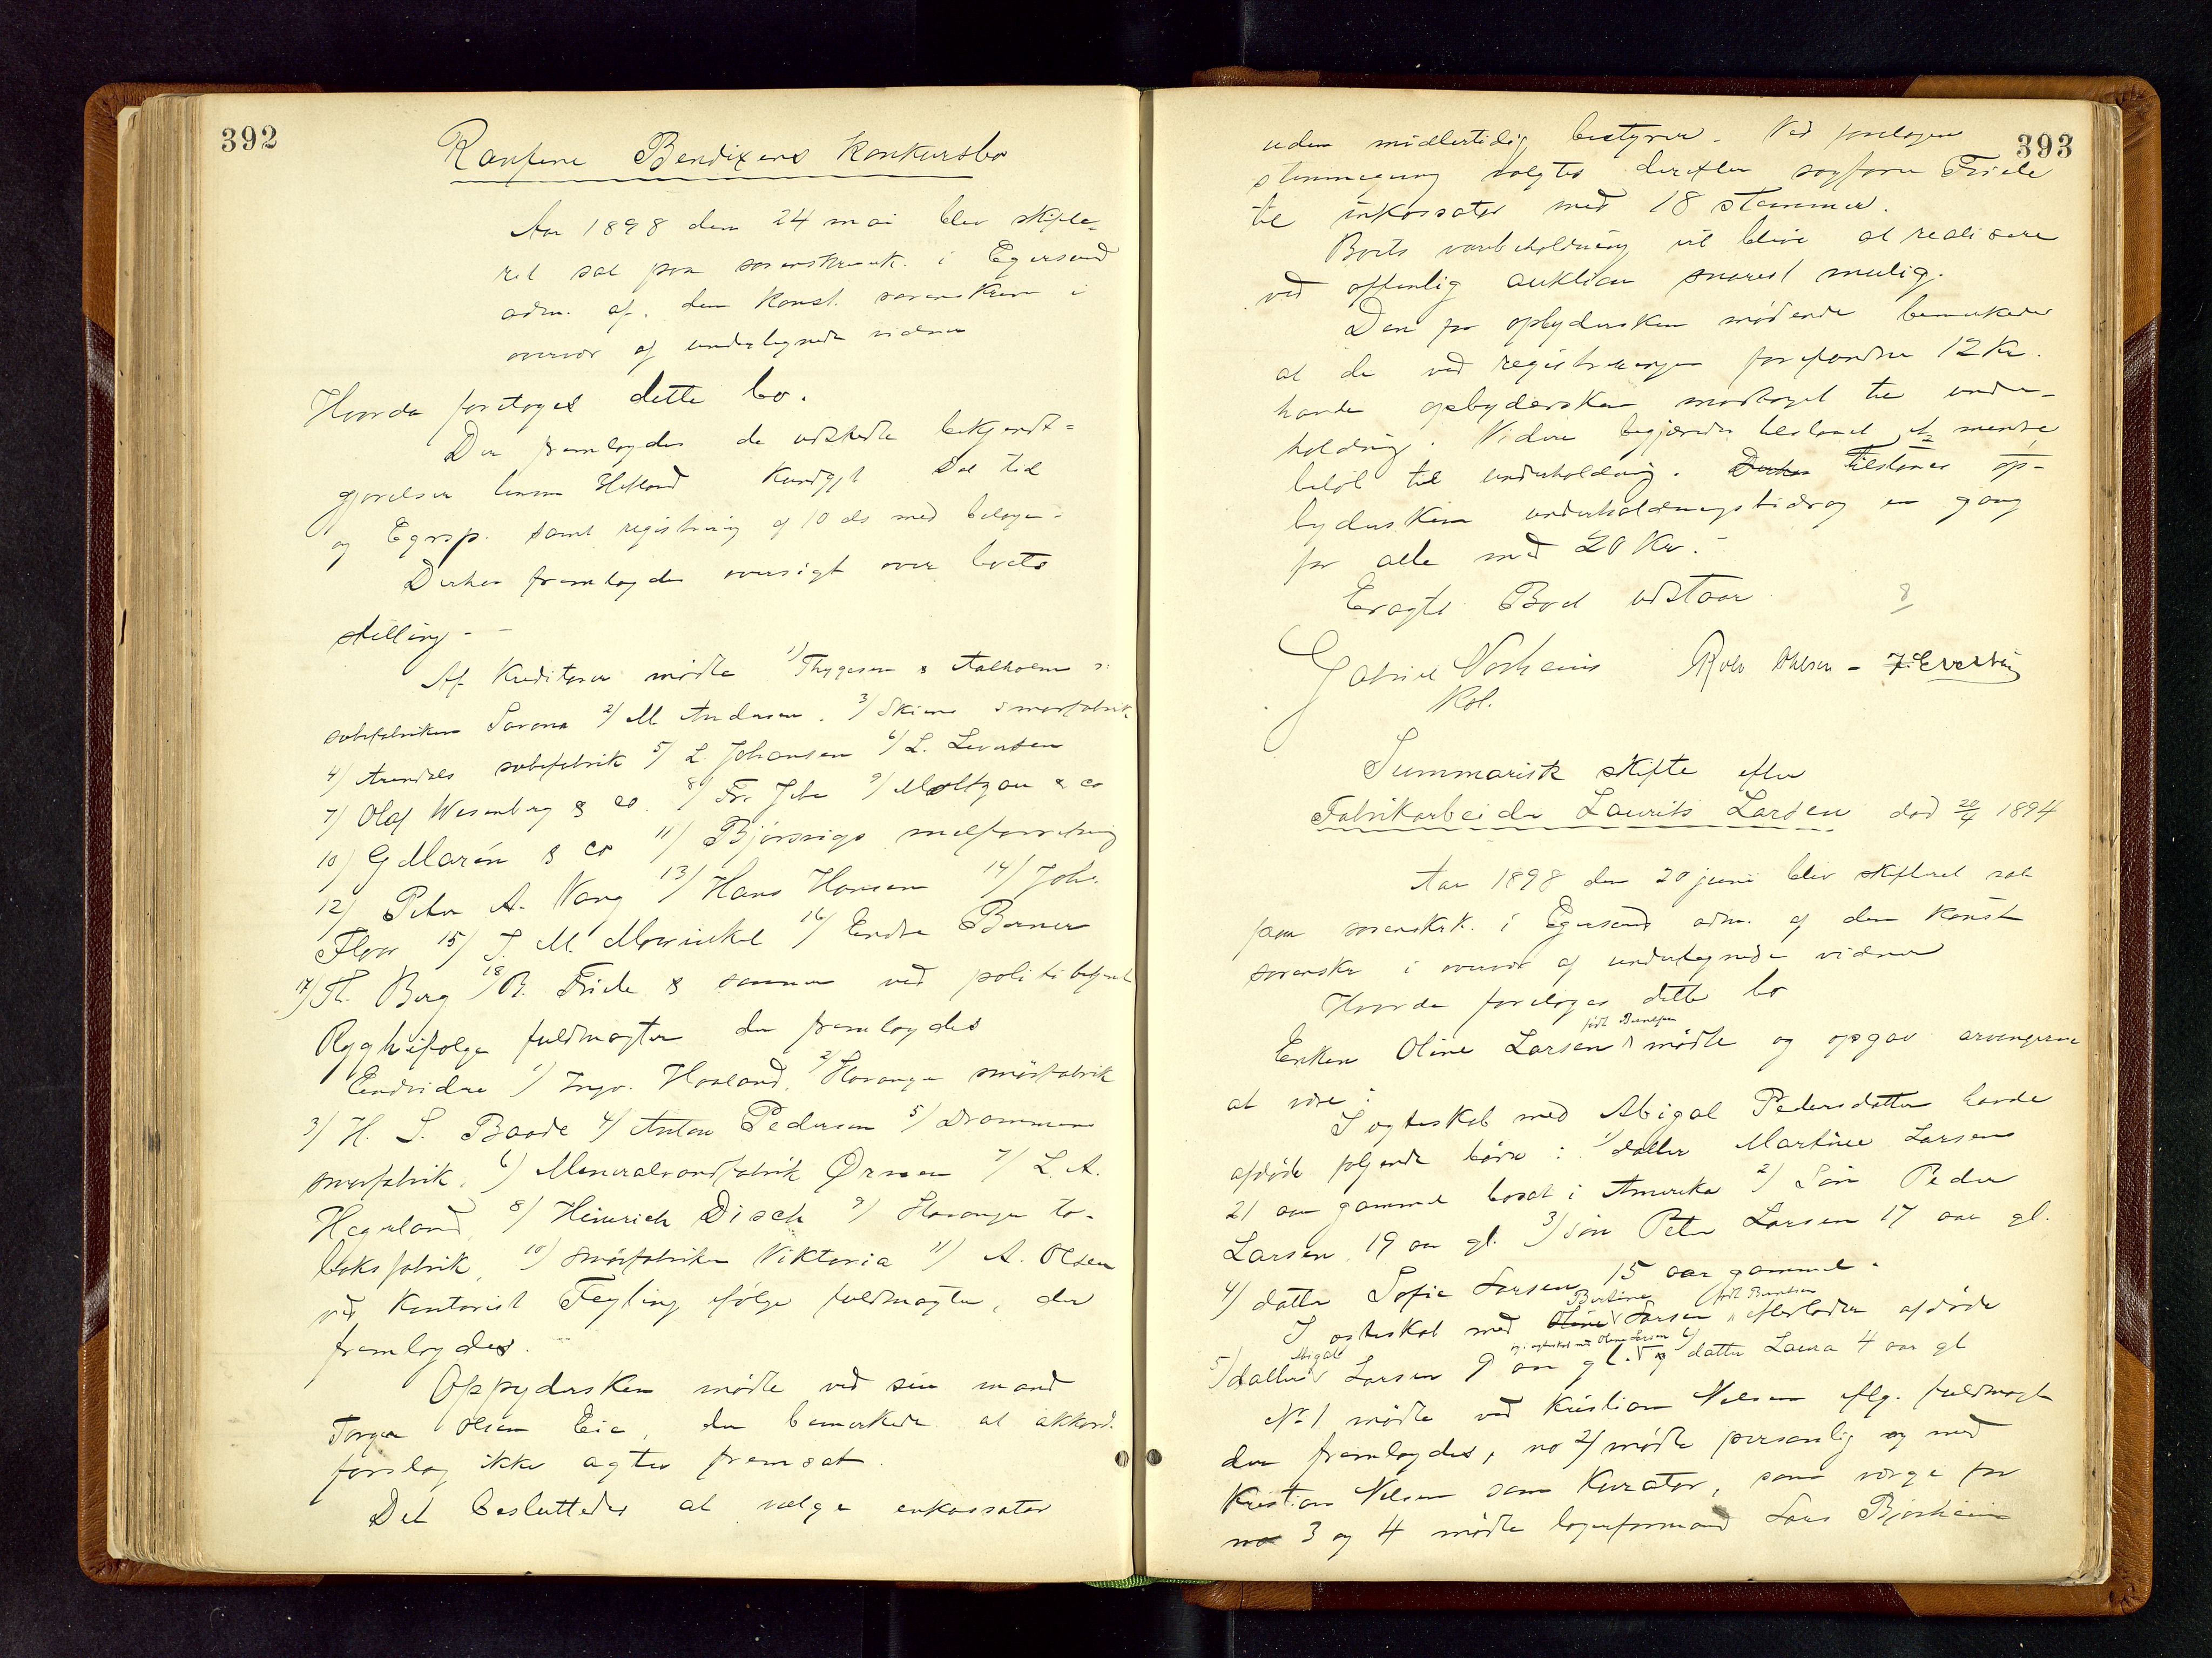 392
Bendixens Konkursbo
Aar 1898 den 24 mai blev skifte-
ret sat paa sorenskrivk. i Egersund
adm. af den Konst. sorenskriver i
overvær af undertegnede vidner
Hvorda foretoges dette bo.
Der fremlagdes de udstedte bekjendt-
gjørelser Kundgjt
og Egrsp. samt registrering af 10 ds med bilage.
Derhos fremlagdes oversigt over boets
stilling.
Af Kreditorer mødte 1) Thygesen & Aalholm
sæbefabriken 2/ M Andersen. 3/ Skiens smørfabrik
4/ Arendals sæbefabrik 5/ L. Johansen 6/ L. Levorsen
7/ Olaf Wesenberg & co. 8/ Fr. 9/ Moltzau & co
10) G Marén & co 11) Bjørsvigs melforretning
12) Peter A. Vang 13) Hans Hansen 14) Joh.
Floor 15) J. M. Mowinkel 16/ Endre Berner
17) Th. Berg 18) B. Friele & sønner ved politibetjent
ifølge fuldmagter der fremlagdes
Endvidre 1) Ingv. Haaland, 2) Stavanger smørfabrik
3) H. S. Baade 4) Anton Pedersen 5) Drammens
smørfabrik, 6) Mineralvandfabrik Ørnen 7) L. A.
Hegerland 8) Heinrich Disch 9) Stavanger to-
baksfabrik, 10) smørfabriken Viktoria 11) A. Olsen
ved Kontorist Feyling ifølge fuldmagter, der
fremlagdes.
Oppydersken mødte ved sin mand
Torger Olsen Eie, der bemerkede at akkord-
forslag ikke agtes fremsat.
Det besluttedes at vælge inkassator
393
uden midlertidig bestyrer. Ved foretagen
stemmegivning valgtes derefter sagfører Friele
til inkassator med 18 stemmer.
Boets varebeholdning vil blive at realisere
ved offentlig auktion snarest mulig.
Den for opbydersken mødende bemerkede
at de ved registreringen forefandtne 12 Kr.
havde opbydersken modtaget til under-
holdning. Videre begjæredes tilstaaet et mindre
beløb til underholdning. Derhos tilstaaes op-
bydersken underholdningsbidrag en gang
for alle med 20 Kr.
Eragtet Boet udstaar.
Gabriel Rolv Ohlsen -
Summarisk skifte efter
Fabrikarbeider Laurits Larsen død 20/4 1894
Aar 1898 den 20 juni blev skifteret sat
paa sorenskrk. i Egersund adm. af den Konst
sorenskr i overvær af undertegnede vidner
Hvorda foretoges dette bo
født Berntsen
Enken Oline Larsen mødte og opgav arvingerne
at være:
I egteskab med Abigal Pedersdatter havde
afdøde følgende børn: 1) datter Martine Larsen
21 aar gammel bosat i Amerika 2) Søn Peder
Larsen 19 aar gl. 3) søn Peter Larsen 17 aar gl.
4) datter Sofie Larsen 15 aar gammel.
Bertine født Berntsen
I egteskab med Oline Larsen efterlader afdøde
Abigal og i egteskab med Oline Larsen 6)
5) datter Larsen 9 aar gl. og datter Laura 4 aar gl
No 1 mødte ved Kristian Nilsen iflg. fuldmagt
der fremlagdes, no 2) mødte personlig og med
Kristian Nilsen som Kurator, som værge for
no 3 og 4 mødte lagerformand Lars Bjorheim